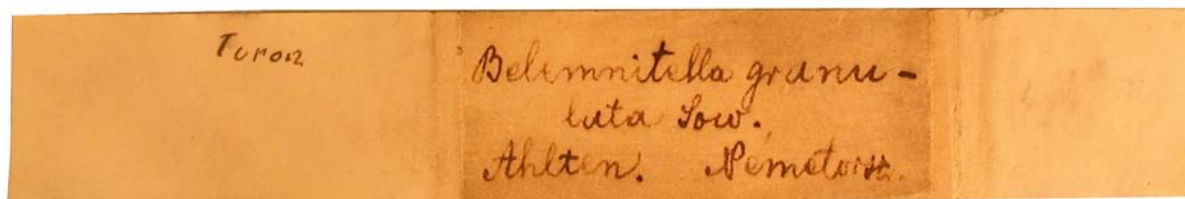 Turon
Belemnitella granu-
lata Sow.
Ahlten. Németorsz.